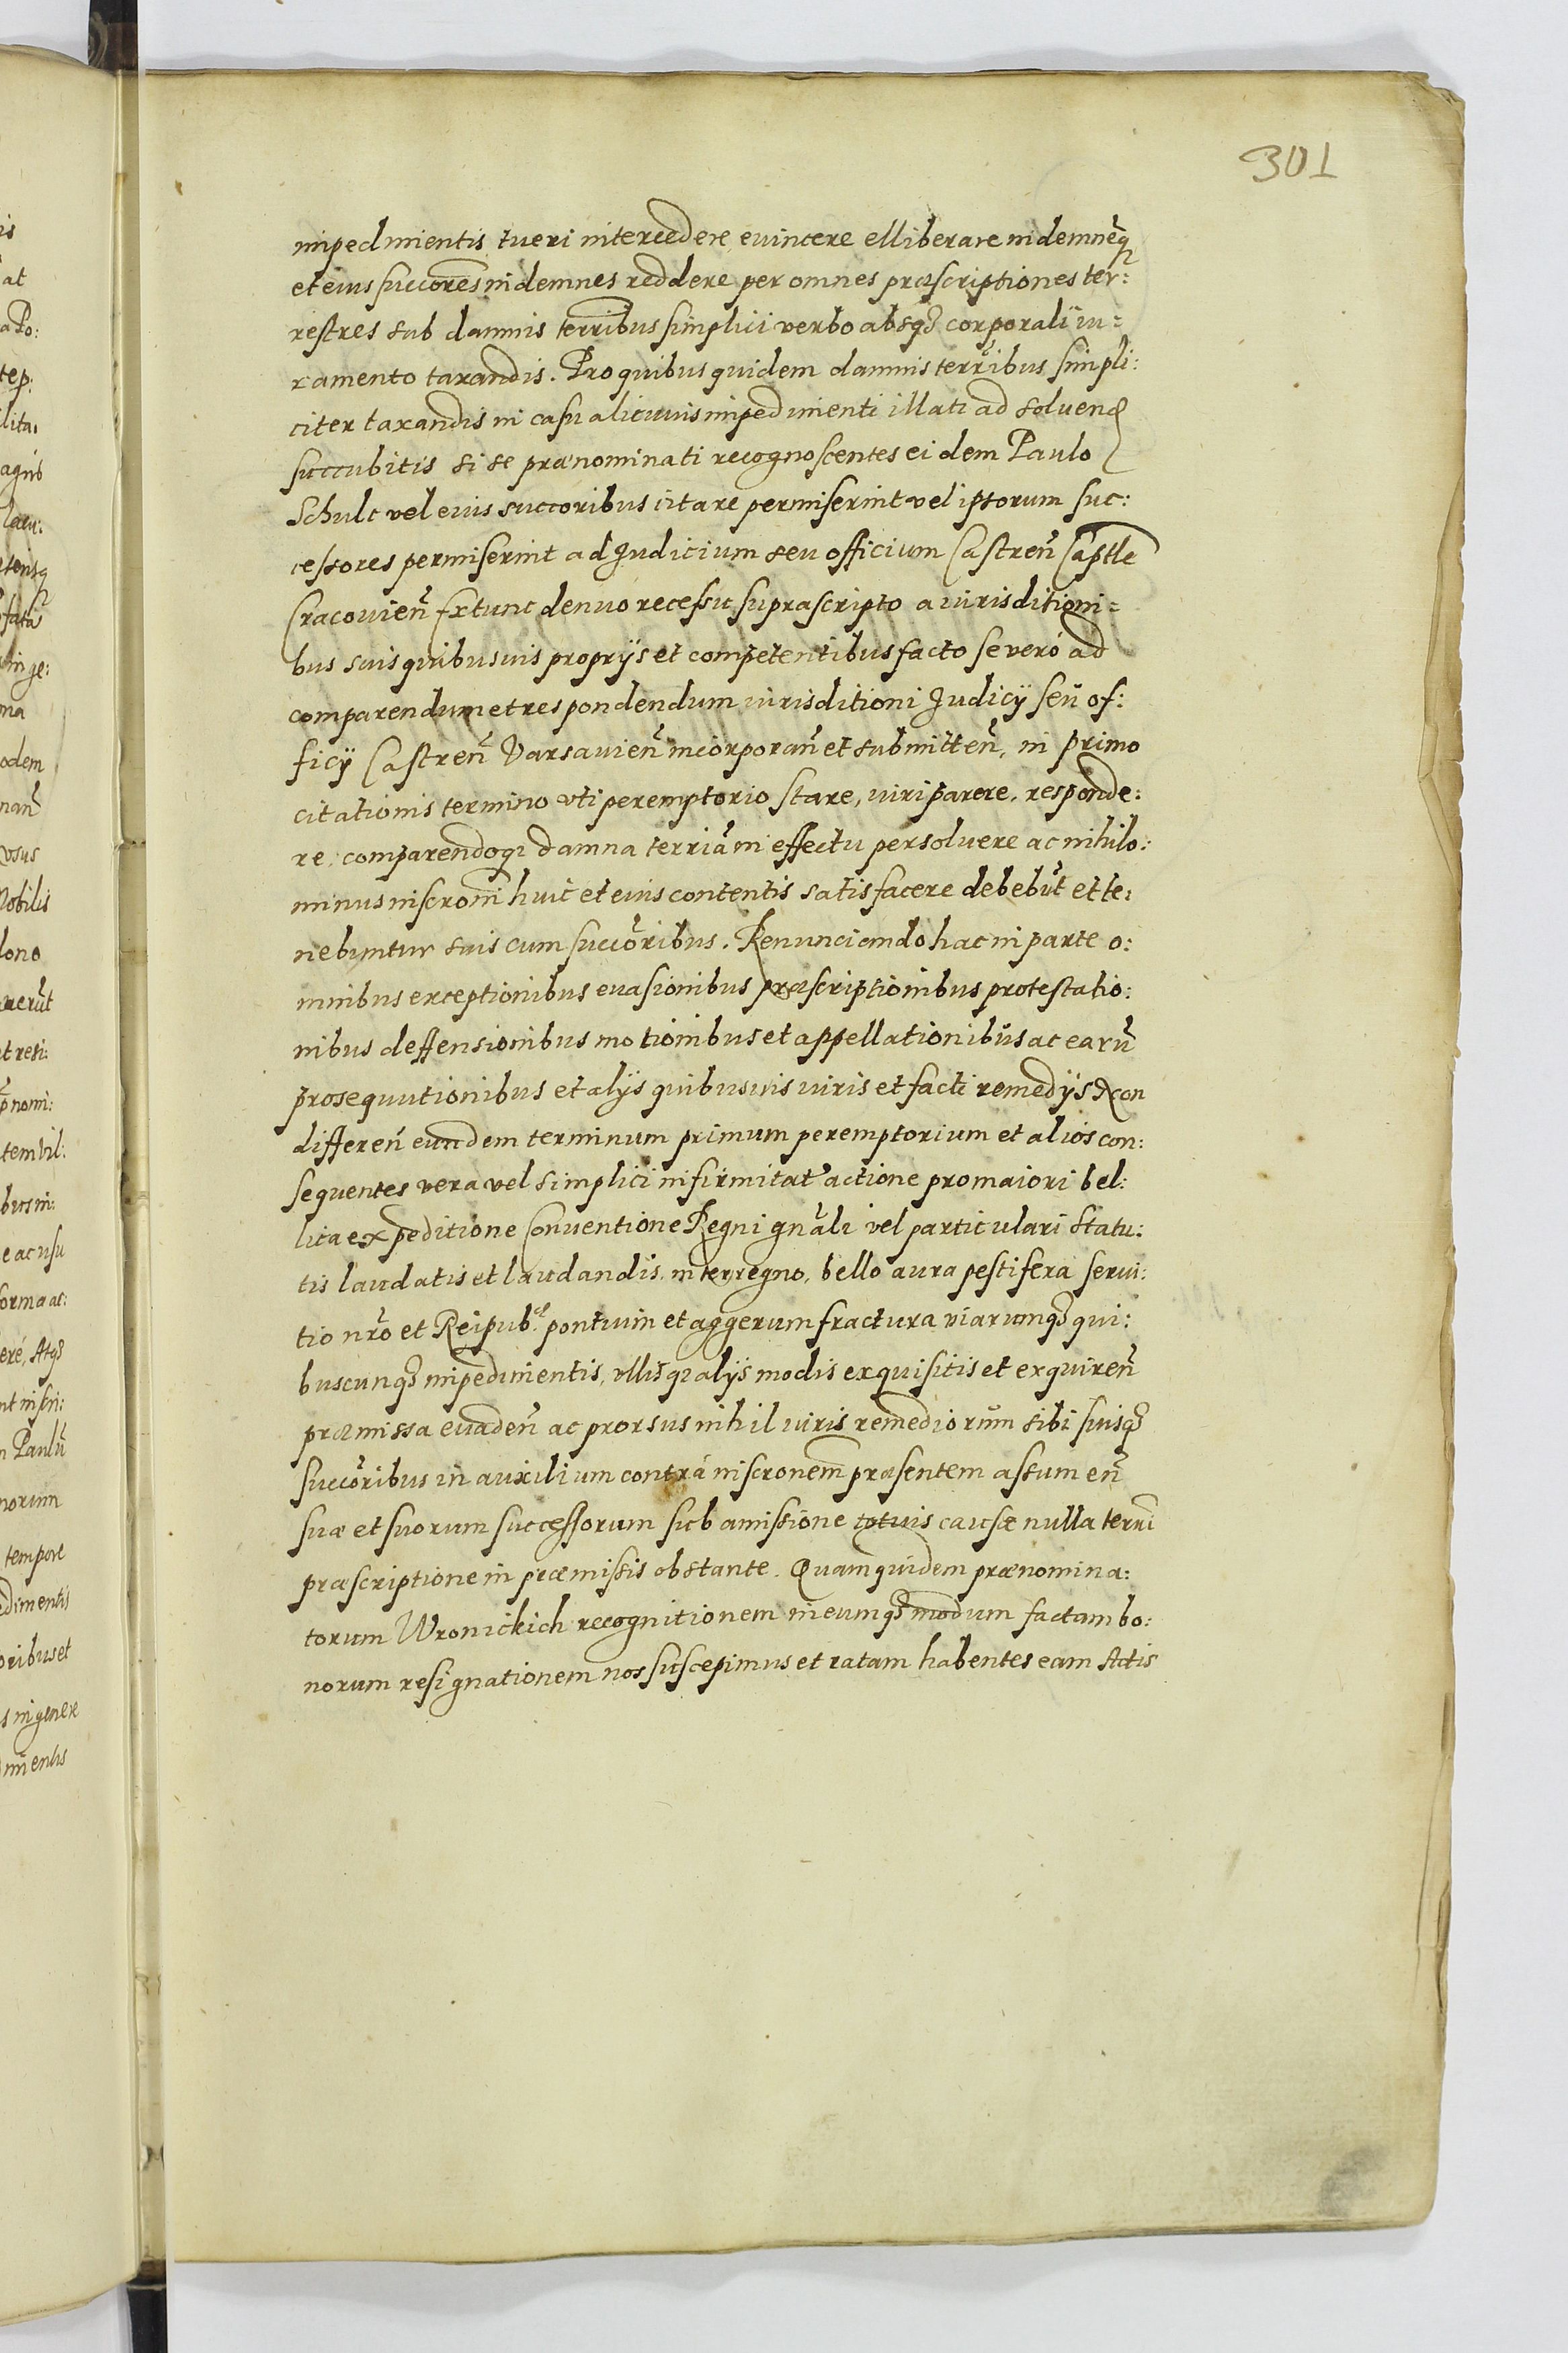 301
impedimentis tueri intercedere euincere elliberare indemneq̃
et eius succores̃ indemnes reddere per omnes præscriptiones ter:
restres sub damnis terribus̃ simplici verbo absq3 corporali iu=
ramento taxandis. Pro quibus quidem damnis terr̃ibus simpli:
citer taxandis in casu alicuius impedimenti illati ad soluend
succubitis si se prænominati recognoscentes eidem Paulo
Schulc vel eius succoribus citare permiserint vel ipsorum suc:
cessores permiserint ad Judicium seu officium Castreñ Captle
Cracouieñ Extunc denuo recessu suprascripto a iurisditioni=
bus suis quibusuis proprÿs et competentibus facto se vero ad
comparendum et respondendum iurisditioni Judicÿ seu of:
ficÿ Castreñ Varsauieñ incorporañ et submitteñ, in primo
citationis termino vti peremptorio stare, iuri parere, responde:
re, comparendoq3 damna terriã in effectu persoluere ac nihilo:
minus inscrom̃ huic et eius contentis satisfacere debebũt et te:
nebuntur suis cum succõribus. Renunciando hac in parte o:
mnibus exceptionibus euasionibus præscriptionibus protestatio:
nibus deffensionibus motionibus et appellationibus ac earũ
prosequutionibus et alÿs quibusuis iuris et facti remedÿs Non
differeñ eundem terminum primum peremptorium et alios con:
sequentes vera vel simplici infirmitat' actione pro maiori bel:
lica expeditione Conuentione Regni gnãli vel particulari statu:
tis laudatis et laudandis, interregno, bello aura pestifera serui:
tio nr̃o et Reipub. pontium et aggerum fractura viarumq3 qui:
buscunq3 impedimentis, vllisq3 alÿs modis exquisitis et exquireñ
præmissa euadeñ ac prorsus nihil iuris remediorum sibi suisq3
succõribus in auxilium contra inscronem̃ præsentem assumeñ
suæ et suorum successorum sub amissione totius causæ nulla terrĩ
præscriptione in præmissis obstante. Quam quidem prænomina:
torum Wronickich recognitionem ineumq3 modum factam bo:
norum resignationem nos suscepimus et ratam habentes eam Actis